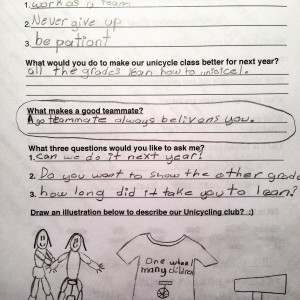 1. work as a team
2. Never give up
3. be pationt
What would you do to make our unicycle class better for next year?
all the grades lean how to unicicel.
What makes a good teammate?
A go teamate always belivens you.
What three questions would you like to ask me?
1. can we do it next year!
2. Do you want to show the other grad
3. how long did it take you to lean?
Draw an illustration below to describe our Unicycling club? :)
One wheel
many children